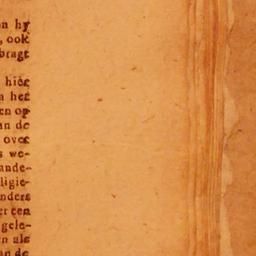 n hy
, ook
bragt
hier
n het
en op
an de
over
s we-
ande-
ligie-
nders
er een
gele-
n als
an de